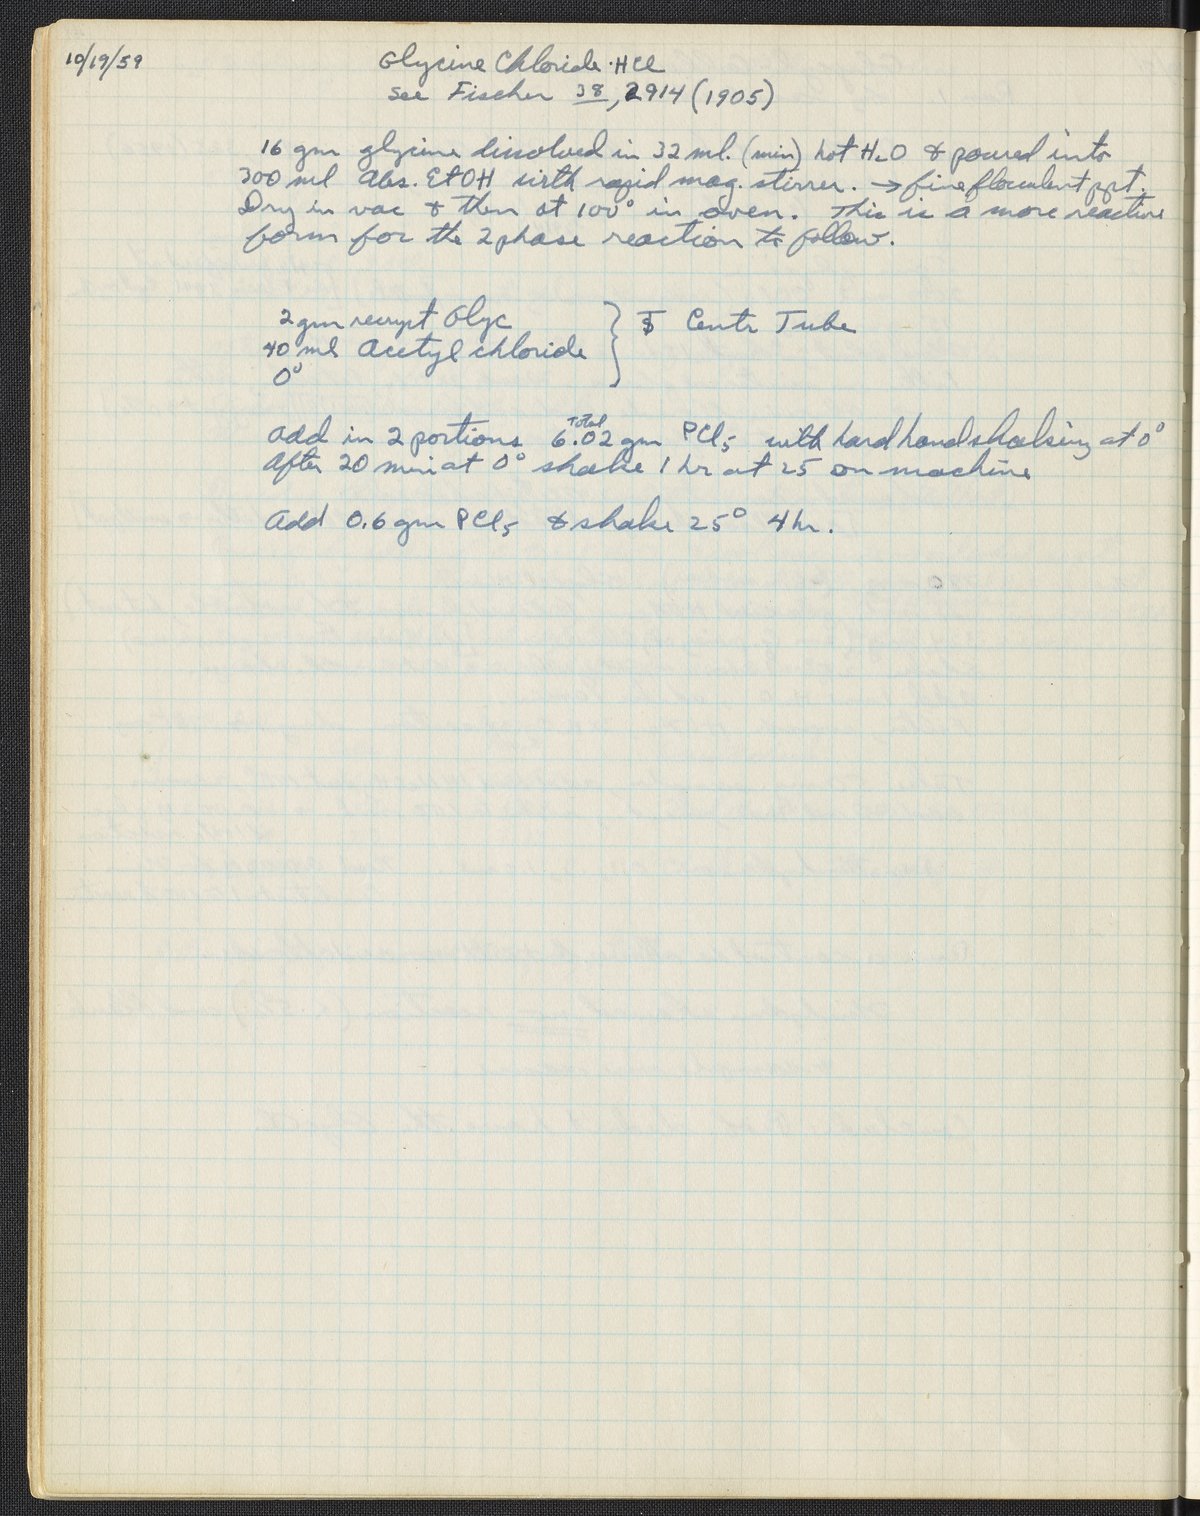 10/19/59
Glycine Chloride·HCl
see Fischer 38, 2914 (1905)
16 gm glycine dissolved in 32 ml. (min) hot H2O & poured into
300 ml Abs. EtOH with rapid mag. stirrer. → fine flocculent ppt.
Dry in vac & then at 100° in oven. This is a more reactive
form for the 2 phase reaction to follow.
2 gm recrypt Glyc
40 ml Acetyl chloride } Centr Tube
0°
Add in 2 portions Total 6.02 gm PCl5 with hard hand shaking at 0°
After 20 min at 0° shake 1 hr at 25 on machine
Add 0.6 gm PCl5 & shake 25° 4 hr.